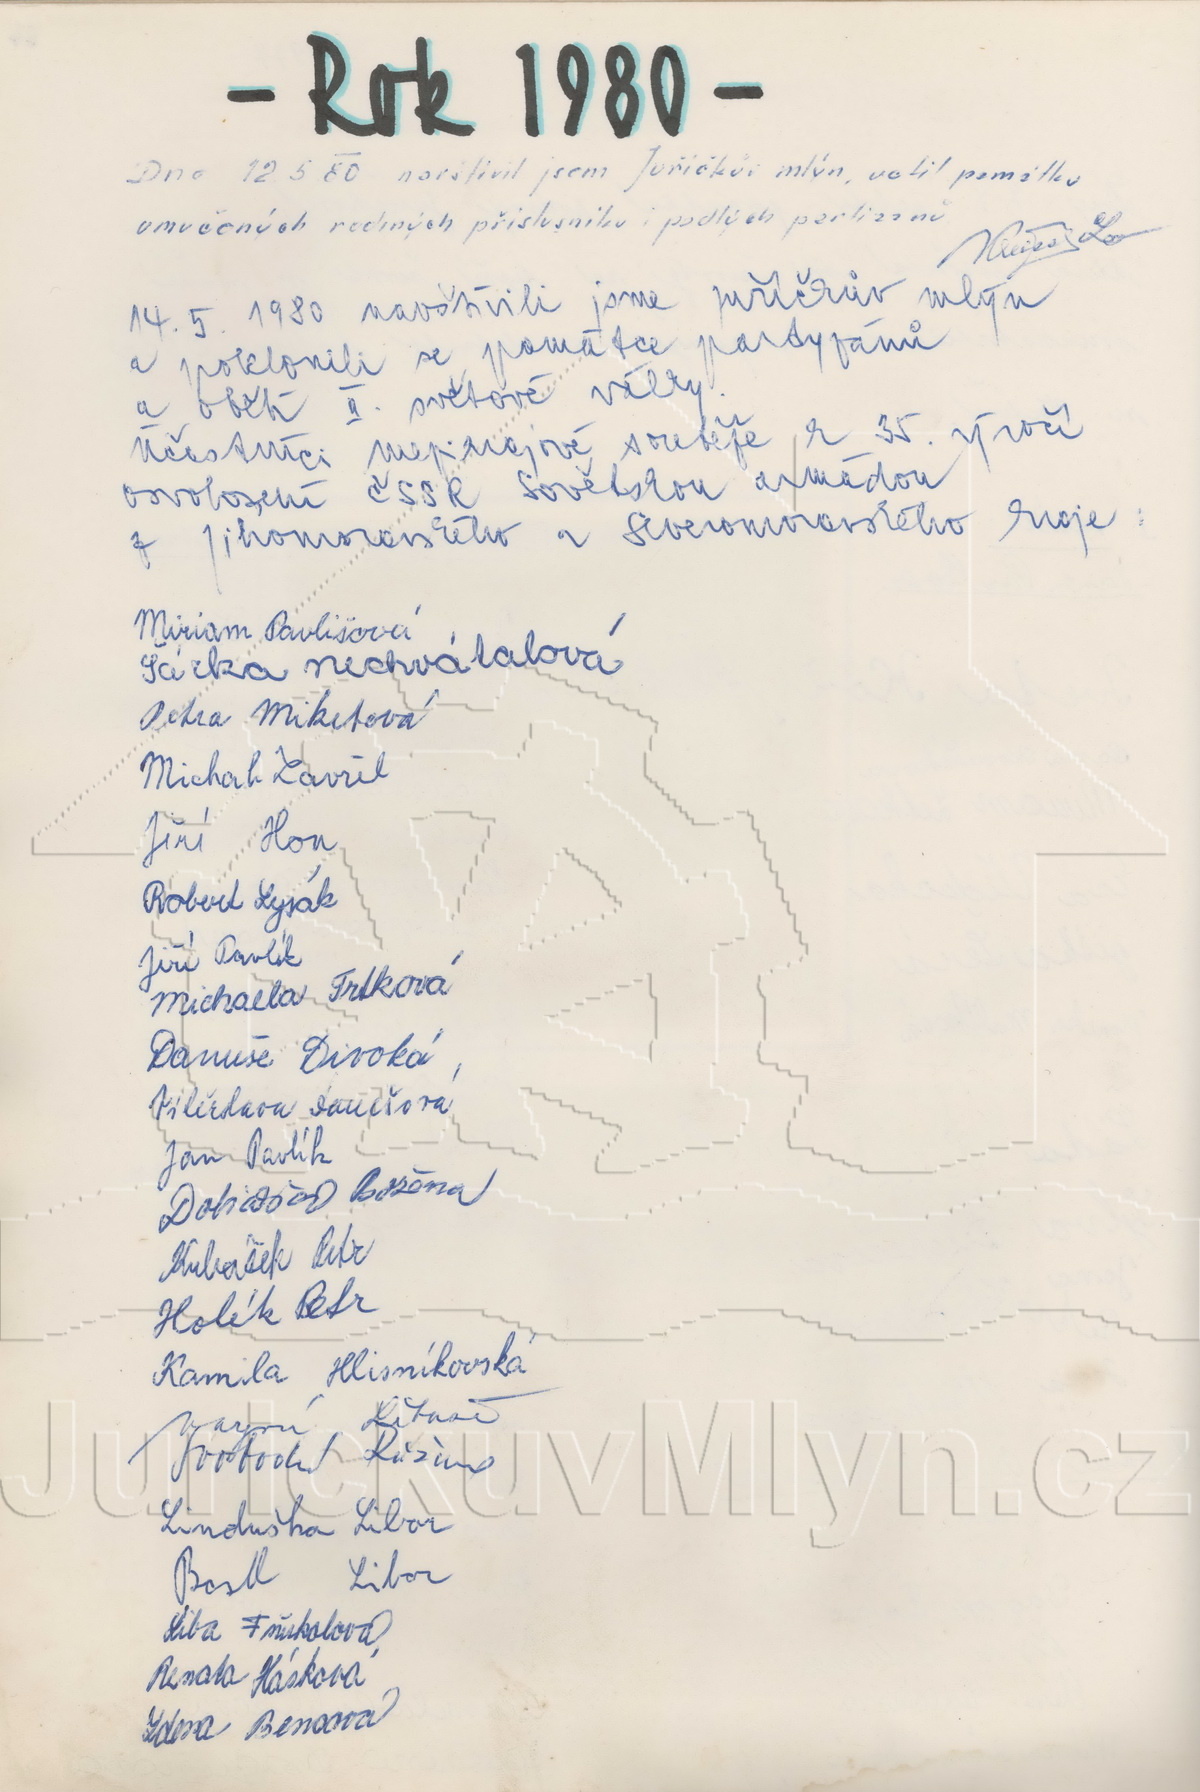 - Rok 1980 -
Dne 12 5 80 navštívil jsem Juříčkův mlýn, uctil památku
umučených rodinných příslušníku i padlých partizanů
14. 5. 1980 navštívili jsme juříčkův mlýn
a poklonili se památce partyzánů
a obětí II. světové války.
Účastníci mezikrajové soutěže k 35. výročí
osvobození ČSSR Sovětskou armádou
z jihomoravského a Severomoravského kraje :
Miriam Pavlišová
Šárka nechvátalová
Petra Miketová
Michal
Jiří Hon
Robert Lysák
Jiří Pavlík
Michaela Trtková
Danuše Divoká
Jan Pavlík
Božena
Kubáček Petr
Holék Petr
Kamila Hlisnikovská
Svobodová Růžena
Linduška Libor
Libor
Liba
Renata Hásková
Zdena Bencová
JurickuvMlyn.cz